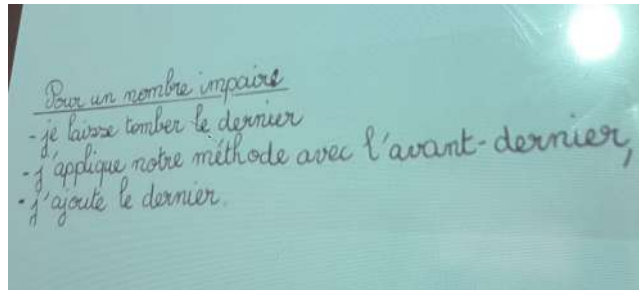 Pour un nombre impaire
- je laisse tomber le dernier
- j'applique notre méthode avec l'avant-dernier,
- j'ajoute le dernier.